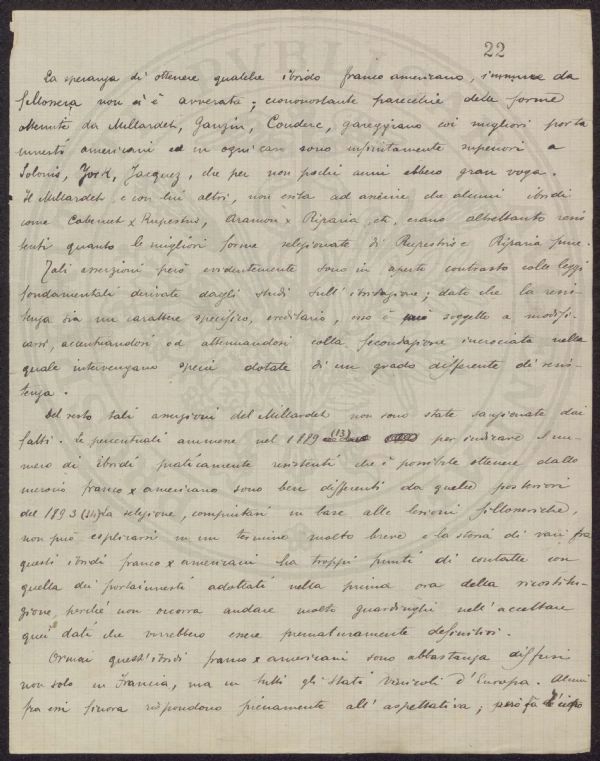 22
La speranza di ottenere qualche ibrido franco americano, immune da
fillossera non si è avverata; ciononostante parecchie delle forme
ottenute da Millardet, Ganzin, Couderc, gareggiano coi migliori porta
innesti americani ed in ogni caso sono infinitamente superiori a
Solonis, York, Jacquez, che per non pochi anni ebbero gran voga.
Il Millardet e con lui altri, non esita ad asserire che alcuni ibridi
come Cabernet x Rupestris, Aramon x Riparia, etc, erano altrettanto resi
stenti quanto le migliori forme selezionate di Rupestris e Riparia pure.
Tali asserzioni però evidentemente sono in aperto contrasto colle leggi
fondamentali derivate dagli studi sull'ibridazione; dato che la resi
stenza sia un carattere specifico, ereditario, esso è soggetto a modifi-
carsi, accentuandosi od attenuandosi colla fecondazione incrociata nella
quale intervengano specie dotate di un grado differente di resis-
tenza.
Del resto tali asserzioni del Millardet non sono state sanzionate dai
fatti. Le percentuali ammesse nel 1889 (13) per indicare il nu-
mero di ibridi praticamente resistenti che è possibile ottenere dallo
incrocio franco x americano sono ben differenti da quelle posteriori
del 1893 (14) la selezione, compiutasi in base alle lesioni fillosseriche,
non può esplicarsi in un termine molto breve e la storia di vari fra
questi ibridi franco x americani ha troppi punti di contatto con
quella dei portainnesti adottati nella prima ora della ricostitu-
zione, perché non occorra andare molto guardinghi nell'accettare
quei dati che vorrebbero essere prematuramente definitivi.
Ormai quest'ibridi franco x americani sono abbastanza diffusi
non solo in Francia, ma in tutti gli stati vinicoli d'Europa. Alcuni
fra essi finora rispondono pienamente all'aspettativa; però